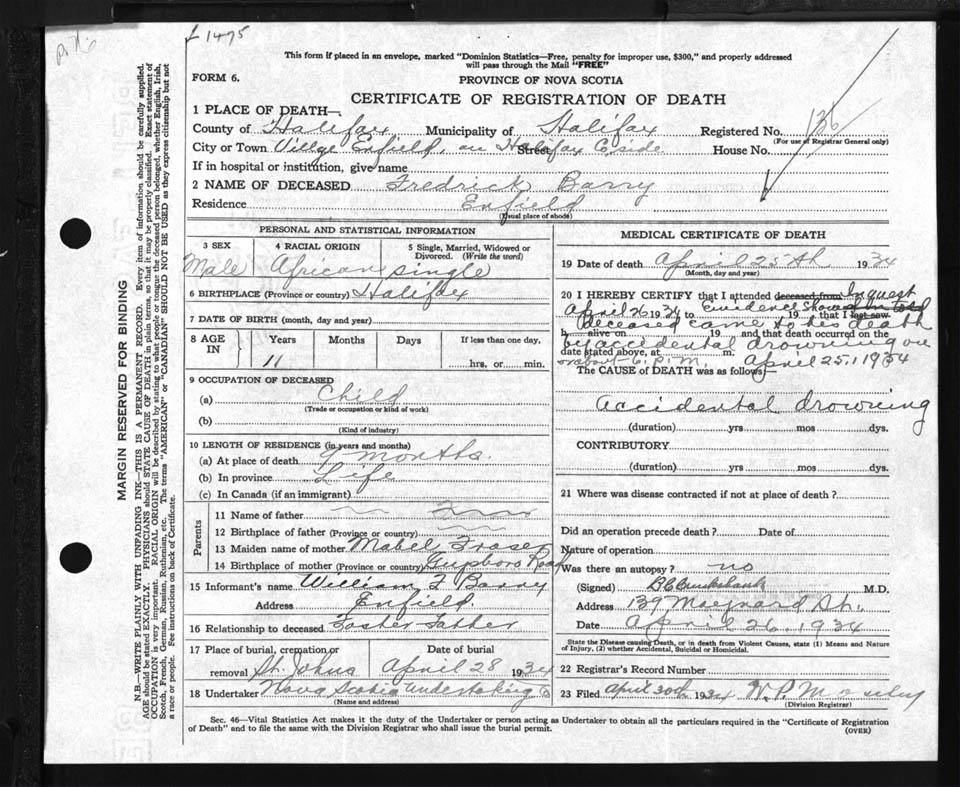 £ 1495
This form if placed in an envelope, marked "Dominion Statistics—Free, penalty for improper use, $300," and properly addressed
will pass through the Mail "FREE"
FORM 6.
PROVINCE OF NOVA SCOTIA
CERTIFICATE OF REGISTRATION OF DEATH
1 PLACE OF DEATH—
County of Halifax Municipality of Halifax Registered No. 136
(For use of Registrar General only)
City or Town Village Enfield, on Halifax Co side Street House No.
If in hospital or institution, give name
2 NAME OF DECEASED Fredrick Barry
Residence Enfield
(Usual place of abode)
PERSONAL AND STATISTICAL INFORMATION
3 SEX 4 RACIAL ORIGIN 5 Single, Married, Widowed or
Divorced. (Write the word)
Male African single
6 BIRTHPLACE (Province or country) Halifax
7 DATE OF BIRTH (month, day and year)
8 AGE IN Years Months Days If less than one day,
11 hrs. or min.
9 OCCUPATION OF DECEASED
(a) Child
(Trade or occupation or kind of work)
(b)
(Kind of industry)
10 LENGTH OF RESIDENCE (in years and months)
(a) At place of death 9 months.
(b) In province Life
(c) In Canada (if an immigrant)
Parents
11 Name of father
12 Birthplace of father (Province or country)
13 Maiden name of mother Mabel Fraser
14 Birthplace of mother (Province or country) Guysboro Road
15 Informant's name William F Barry
Address Enfield.
16 Relationship to deceased Foster Father
17 Place of burial, cremation or Date of burial
removal St. Johns April 28 1934
18 Undertaker Nova Scotia Undertaking Co
(Name and address)
MEDICAL CERTIFICATE OF DEATH
19 Date of death April 25th 1934
(Month, day and year)
20 I HEREBY CERTIFY that I attended deceased from Inquest
April 26 1934 to Evidence Showed 19 , that I last saw
deceased came to his death
h alive on 19 , and that death occurred on the
by accidental drowning on
date stated above, at m.
or about 6. P.M. April 25, 1934
The CAUSE OF DEATH was as follows:—
Accidental drowning
(duration) yrs mos dys.
CONTRIBUTORY.
(duration) yrs mos dys.
21 Where was disease contracted if not at place of death?
Did an operation precede death? Date of
Nature of operation
Was there an autopsy? no
(Signed) M.D.
Address 139 Maynard St.
Date April 26, 1934
State the Disease causing Death, or in death from Violent Causes, state (1) Means and Nature
of Injury, (2) whether Accidental, Suicidal or Homicidal.
22 Registrar's Record Number
23 Filed April 30th 1934
(Division Registrar)
Sec. 46—Vital Statistics Act makes it the duty of the Undertaker or person acting as Undertaker to obtain all the particulars required in the "Certificate of Registration
of Death" and to file the same with the Division Registrar who shall issue the burial permit.
(OVER)
MARGIN RESERVED FOR BINDING
N.B.—WRITE PLAINLY WITH UNFADING INK—THIS IS A PERMANENT RECORD. Every item of information should be carefully supplied.
AGE should be stated EXACTLY. PHYSICIANS should STATE CAUSE OF DEATH in plain terms, so that it may be properly classified. Exact statement of
OCCUPATION is very important. RACIAL ORIGIN will be described by stating to what people or tongue the deceased person belonged, whether English, Irish,
Scotch, French, German, Russian, Ruthenian, etc. The terms "AMERICAN" or "CANADIAN" SHOULD NOT BE USED as they express citizenship but not
a race or people. See instructions on back of Certificate.